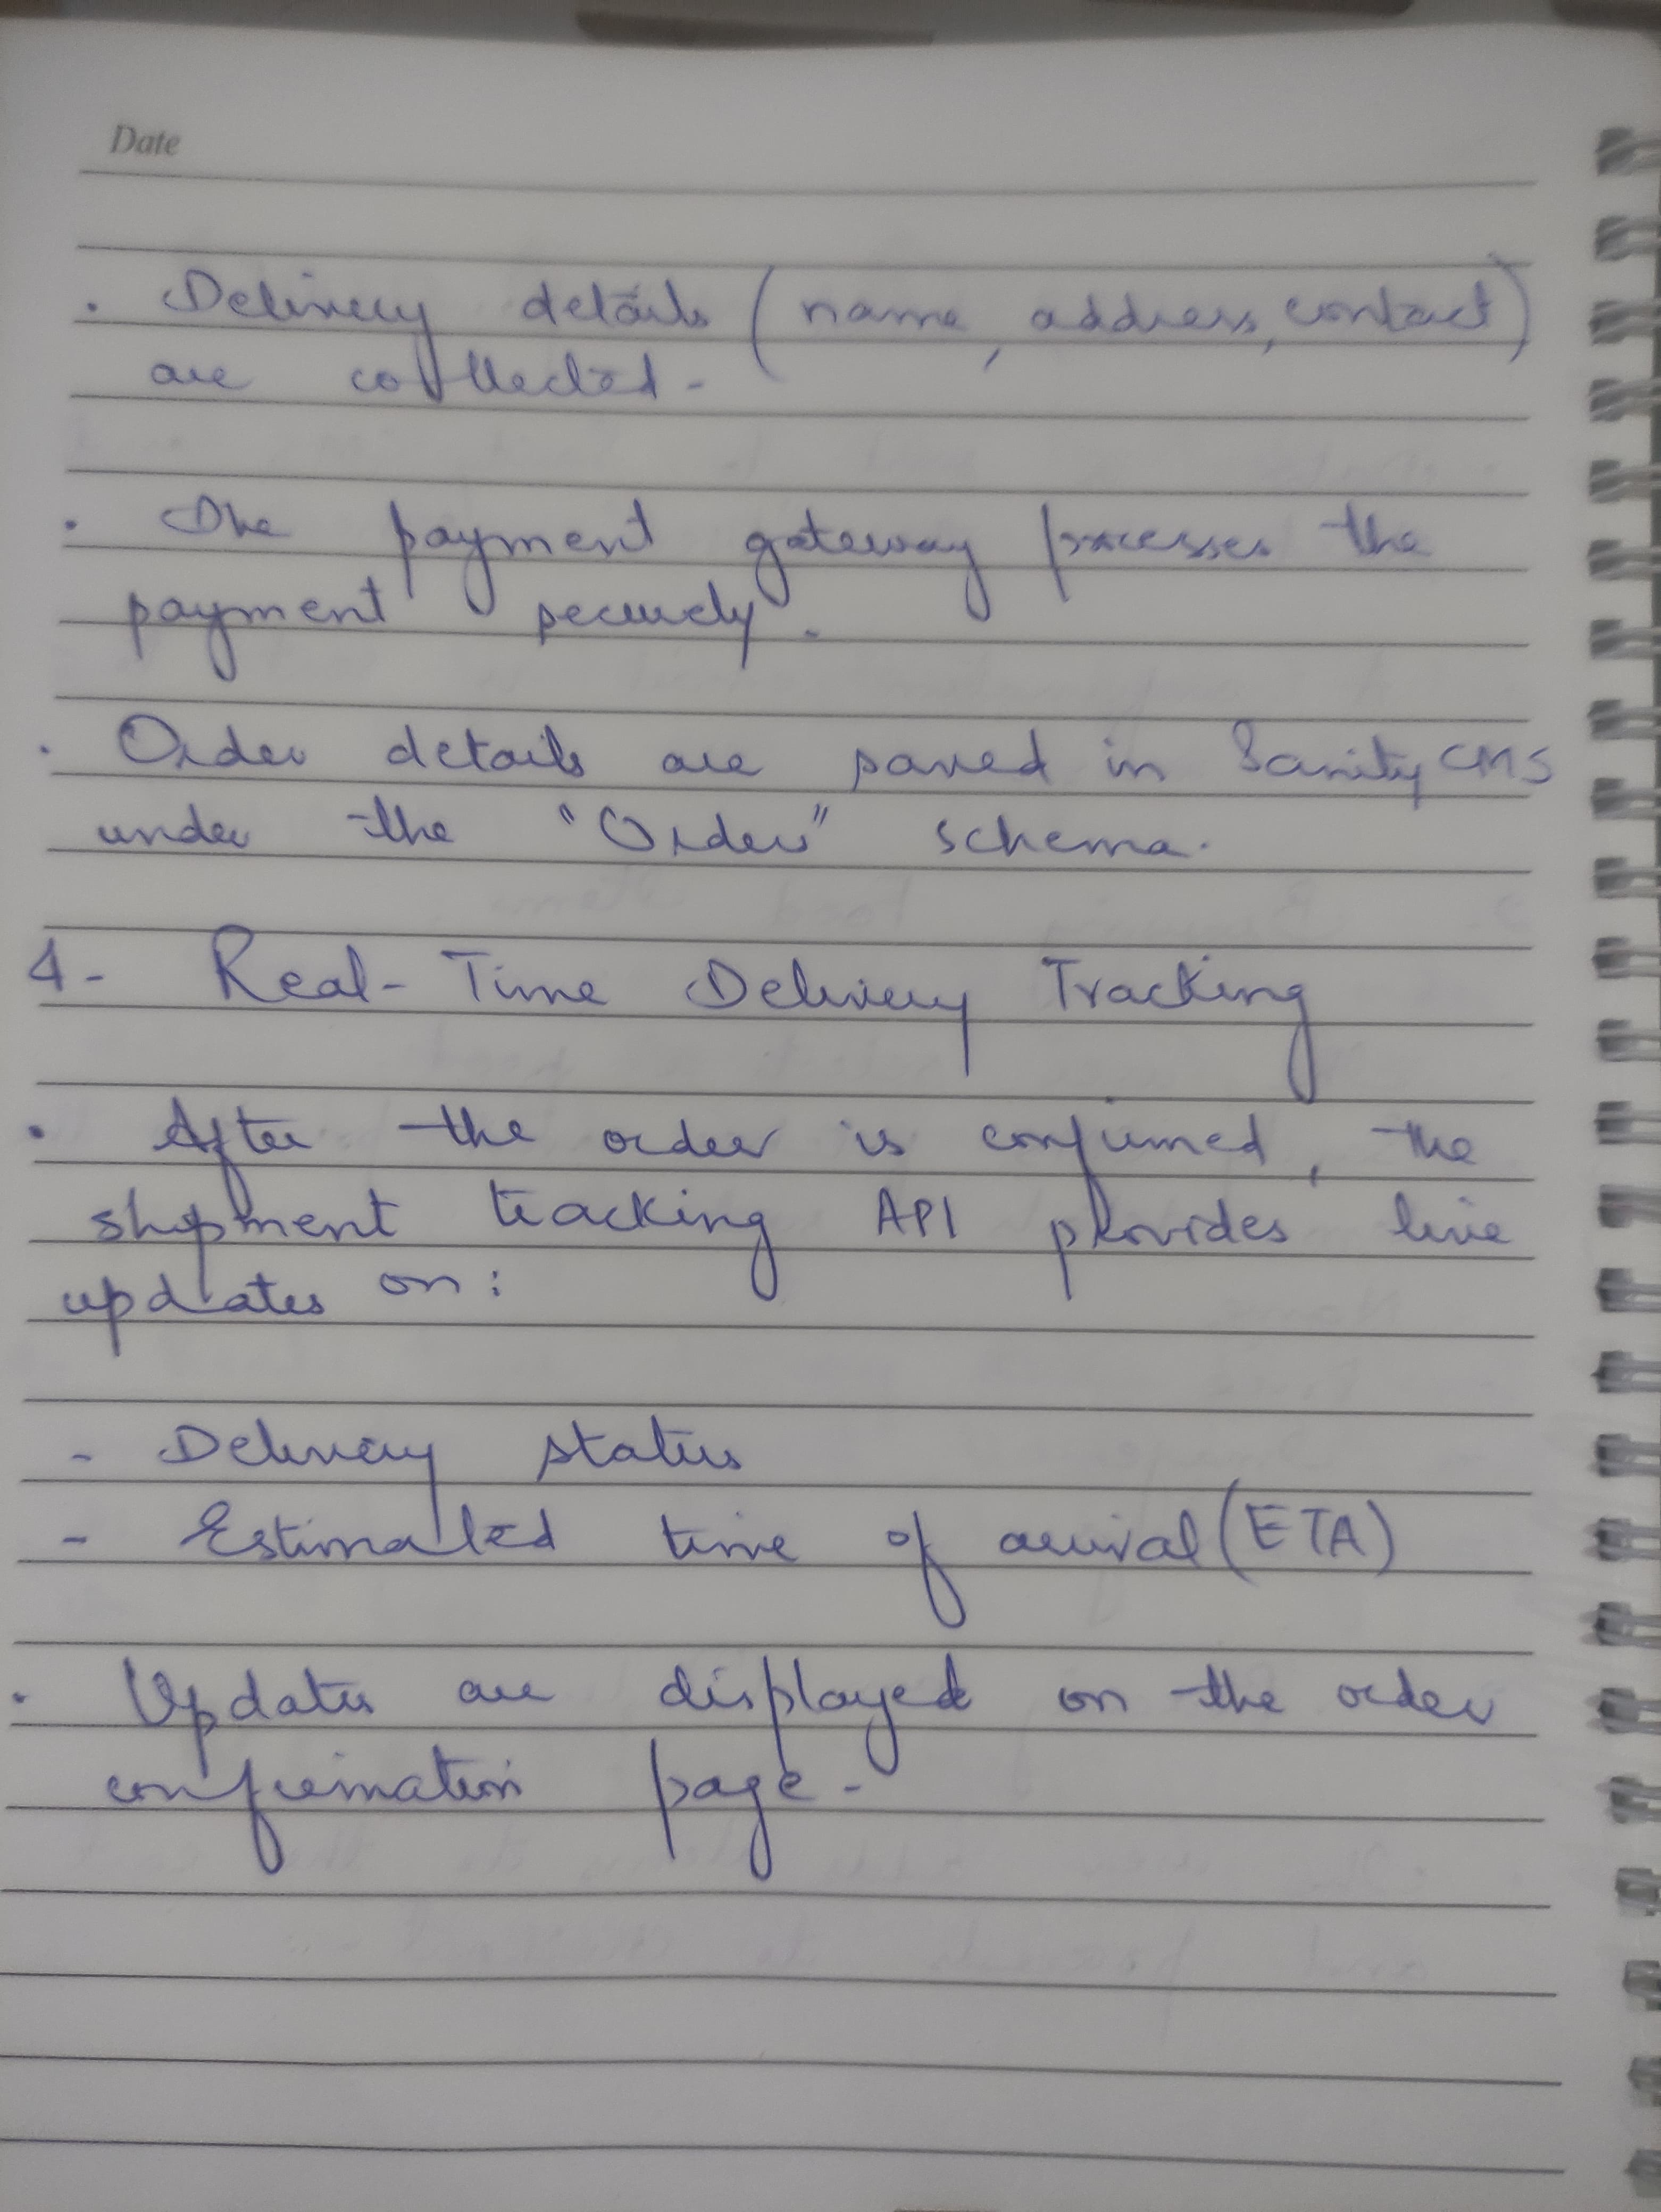 Date
. Delivery details (name, address, contact)
are collected.
. The payment gateway processes the
payment securely.
. Order details are saved in Sanity CMS
under the "Order" schema.
4- Real-Time Delivery Tracking
. After the order is confirmed, the
shipment tracking API provides live
updates on:
- Delivery status
- Estimated time of arrival (ETA)
. Updates are displayed on the order
confirmation page.